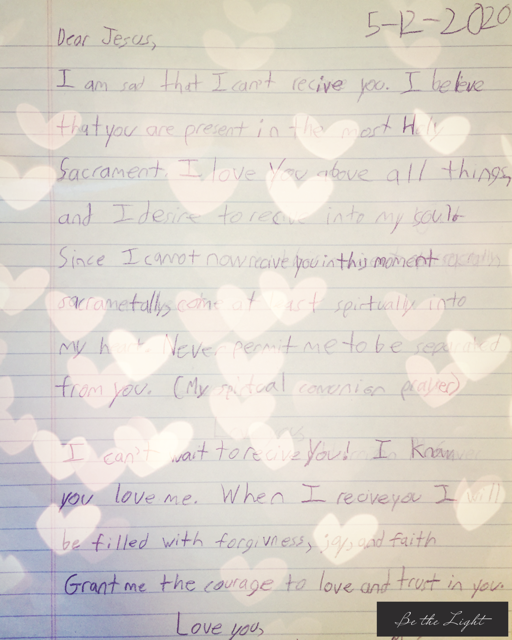 5-12-2020
Dear Jesus,
I am sad that I can't recive you. I beleve
that you are present in the most Holy
Sacrament. I love You above all things,
and I desire to recive into my soul.
Since I cannot now recive you in this moment
sacrametally, come at last spirtually into
my heart. Never permit me to be separated
from you. (My spirtual comunion prayer)
I can't wait to recive You! I Know
you love me. When I recive you I will
be filled with forgivness, joy, and faith
Grant me the courage to love and trust in you.
Love you,
Be the Light